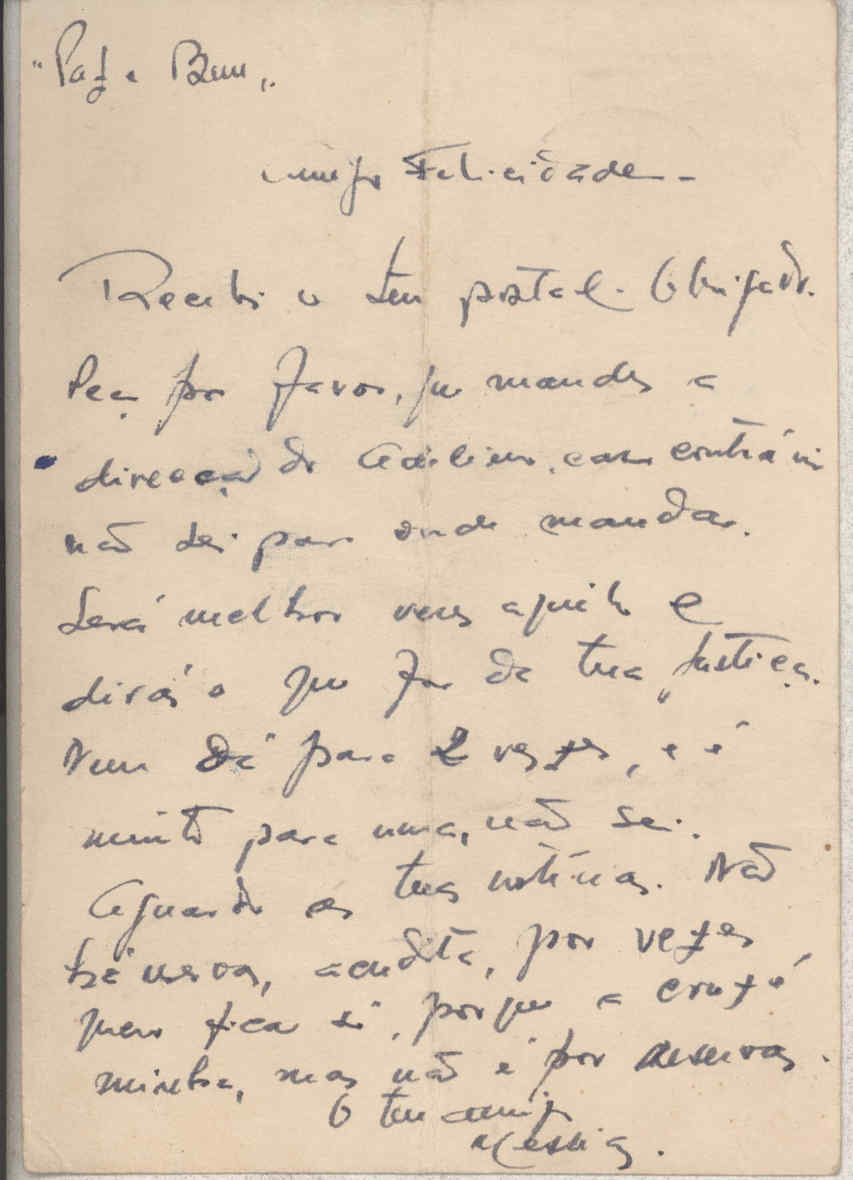 "Paz e Bem".
Amigo Felicidade -
Recebi o teu postal. Obrigado.
Peço por favor, que mandes a
direcção do Adelino, caso contrário
não sei para onde mandar.
Será melhor veres aquilo e
dirás o que for da tua justiça.
Nem dá para 2 vezes, e é
muito para uma, não sei.
Aguardo as tuas notícias. Não
há reservas, acredita, por vezes
quem fica só, porque a cruz é
minha, mas não é por reservas.
O teu amigo
Messias.